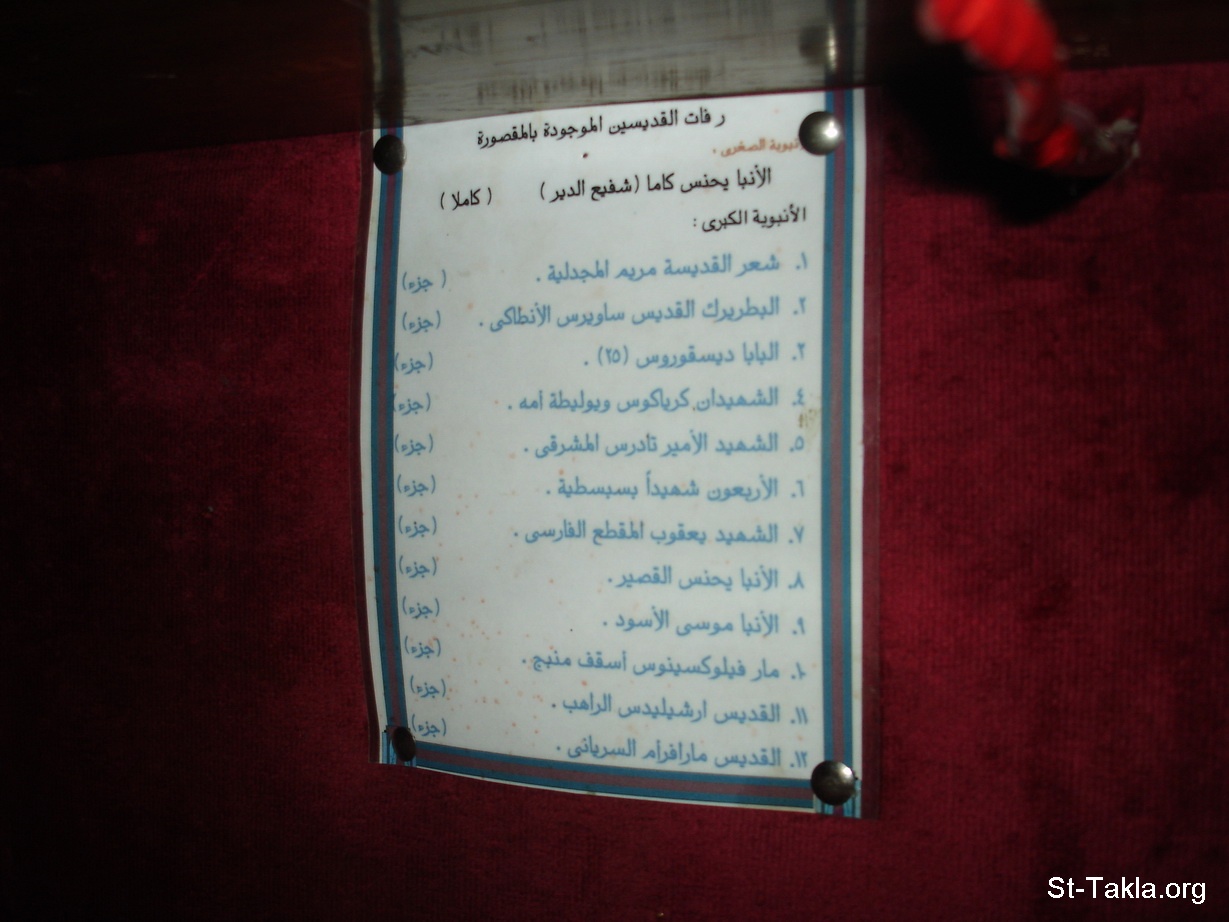 رفات القديسين الموجودة بالمقصورة
الصغرى .
الأنبا يحنس كاما (شفيع الدير) (كاملا)
الأنبوية الكبرى :
١. شعر القديسة مريم المجدلية . (جزء)
٢. البطريرك القديس ساويرس الأنطاكى . (جزء)
٣. البابا ديسقوروس (٢٥) . (جزء)
٤. الشهيدان كرياكوس ويوليطة أمه . (جزء)
٥. الشهيد الأمير تادرس المشرقى . (جزء)
٦. الأربعون شهيداً بسبسطية . (جزء)
٧. الشهيد يعقوب المقطع الفارسى . (جزء)
٨. الأنبا يحنس القصير . (جزء)
٩. الأنبا موسى الأسود . (جزء)
١٠. مار فيلوكسينوس أسقف منبج . (جزء)
١١. القديس ارشيليدس الراهب . (جزء)
١٢. القديس مارافرام السريانى . (جزء)
St-Takla.org